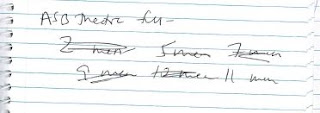 ASB Theatre
2 men 5 men 7 men
9 men 12 men 11 men